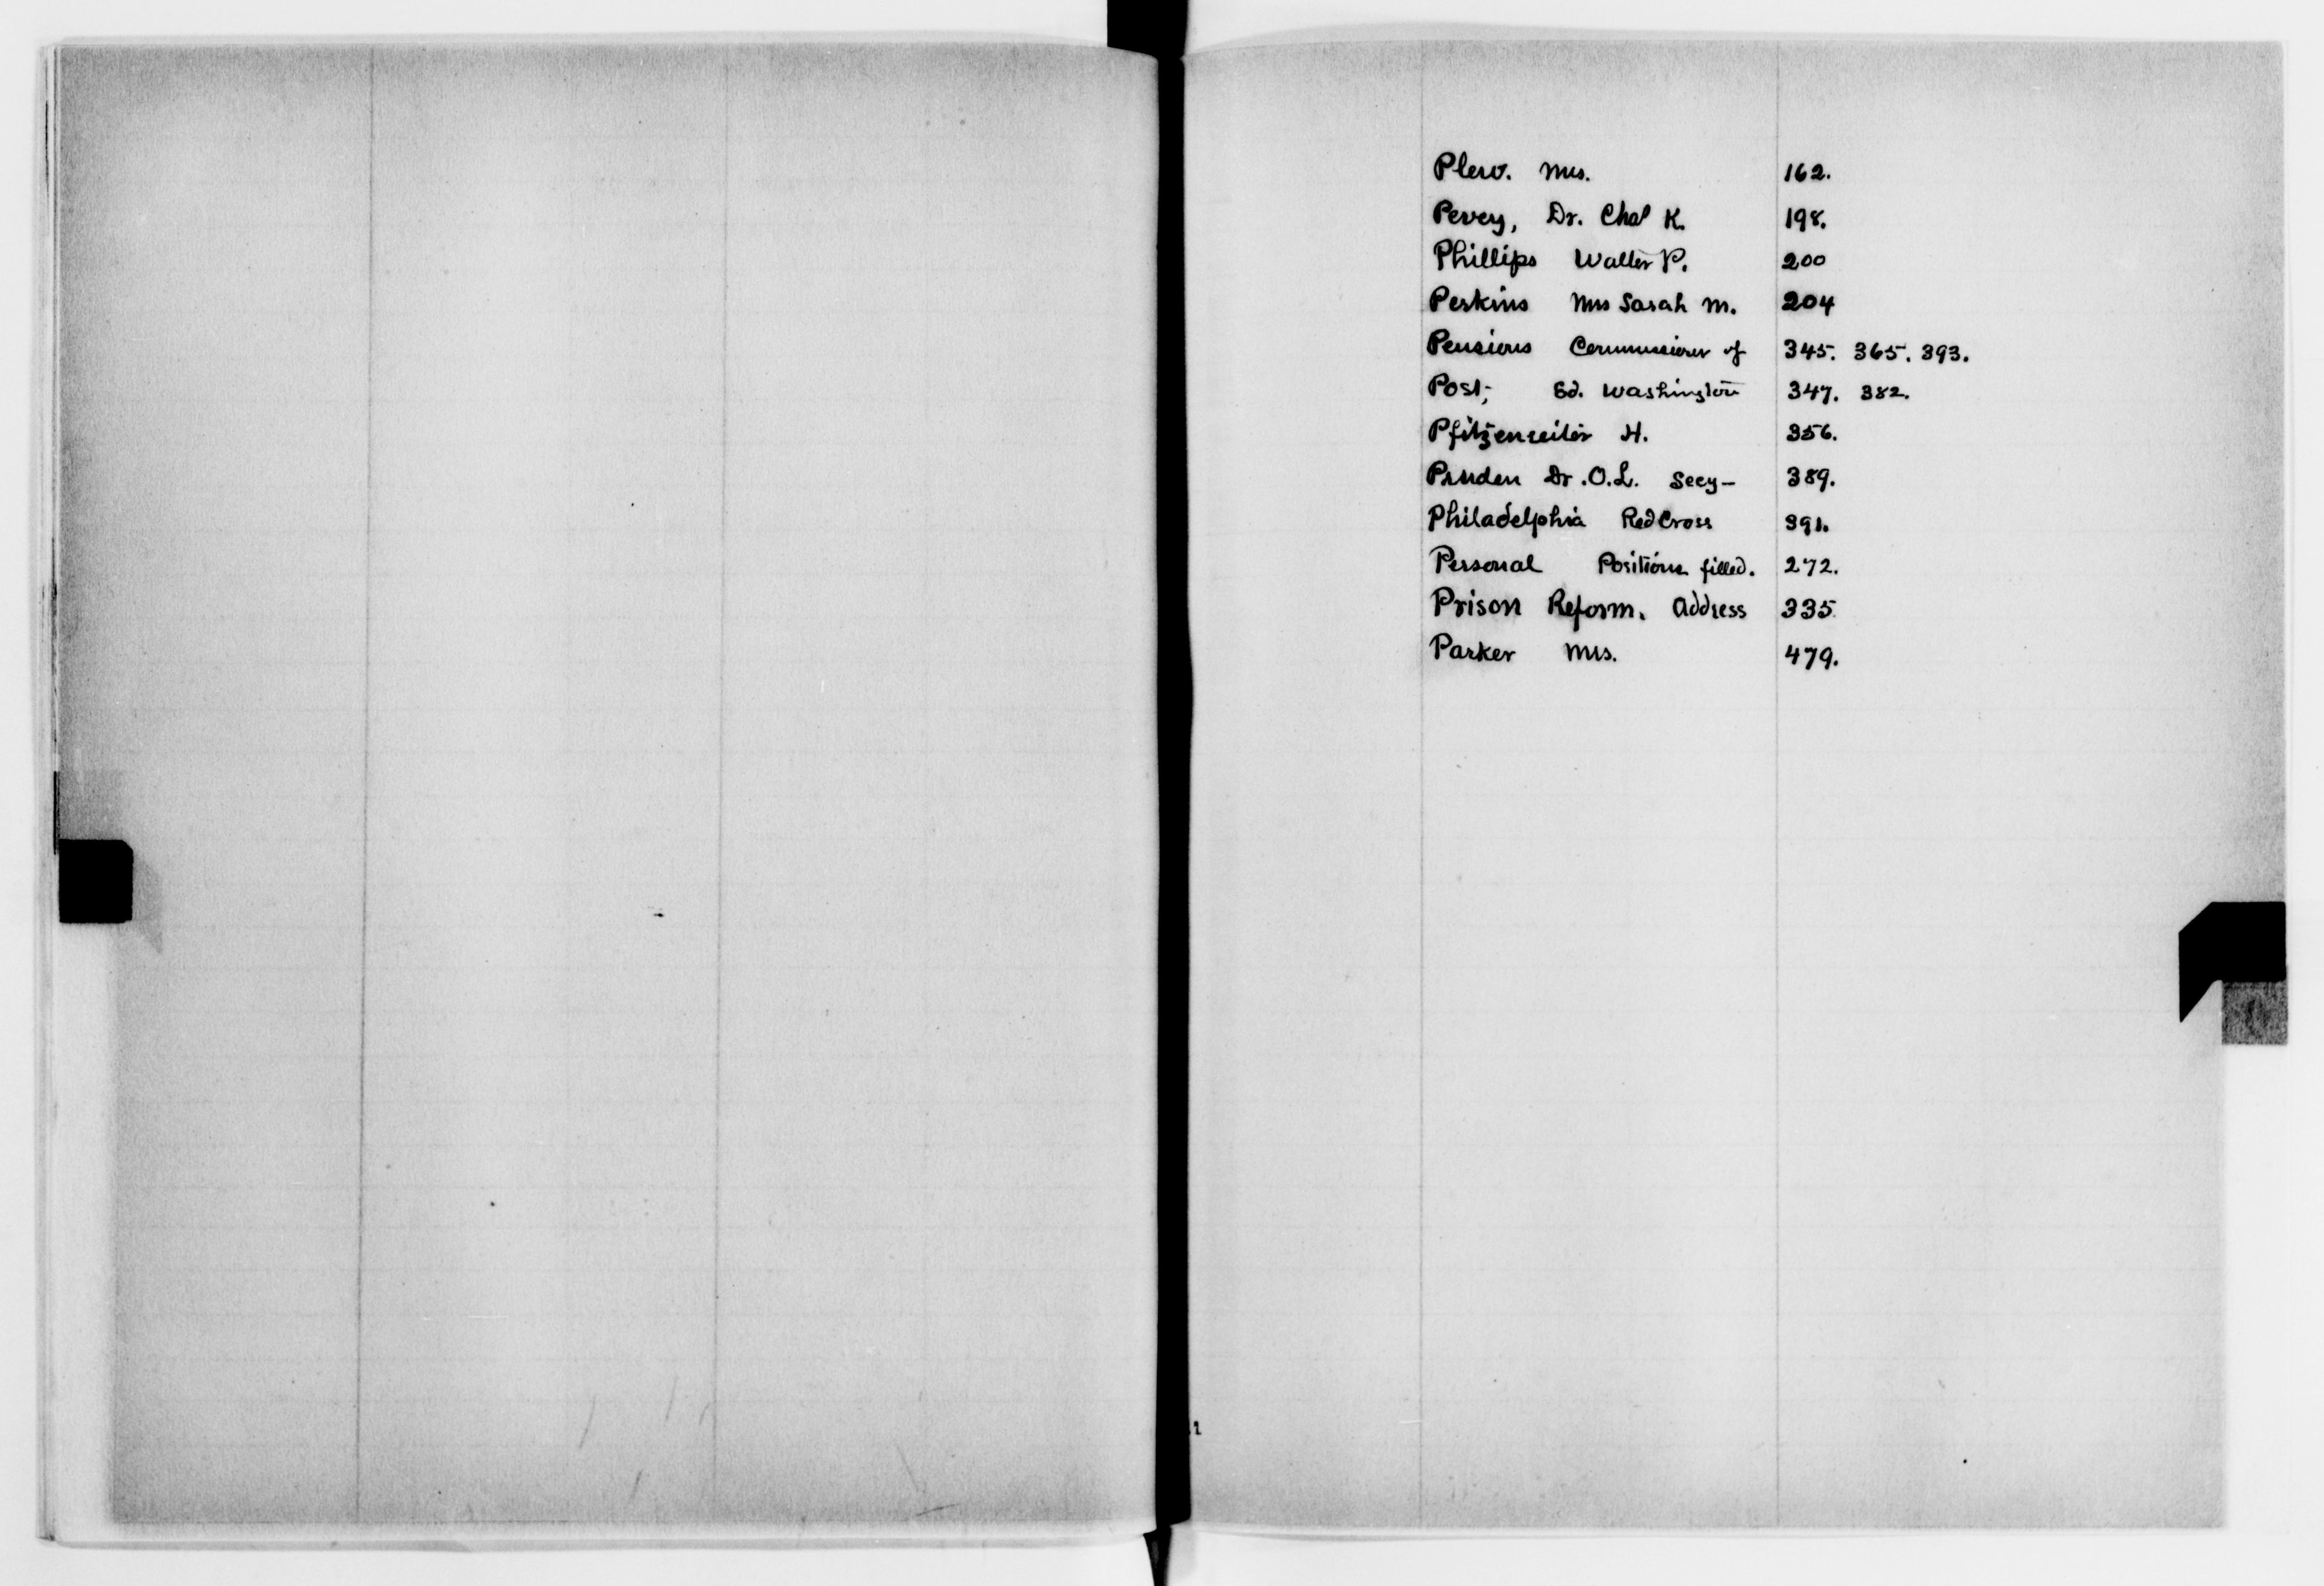 Plew. Mrs. 162.
Pevey, Dr. Chas K. 198.
Phillips Walter P. 200
Perkins Mrs Sarah M. 204
Pensions Commissioner of 345. 365. 393.
Post, Ed. Washington 347. 382.
H. 356.
Pruden Dr. O.L. Secy— 389.
Philadelphia Red Cross 391.
Personal Positions filled. 272.
Prison Reform. Address 335.
Parker Mrs. 479.